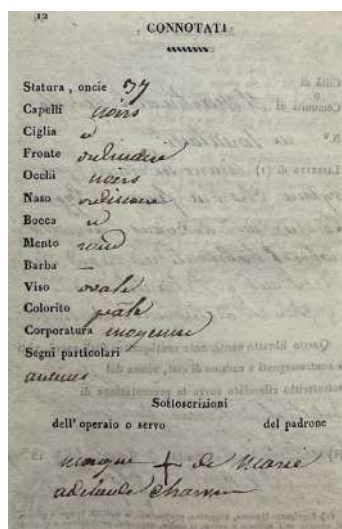 12
CONNOTATI
Statura, oncie 37
Capelli noirs
Ciglia id
Fronte ordinaire
Occhi noirs
Naso ordinaire
Bocca id
Mento rond
Barba —
Viso ovale
Colorito pâle
Corporatura moyenne
Segni particolari
aucuns
Sottoscrizioni
dell' operaio o servo del padrone
marque + de Marie
adelaide